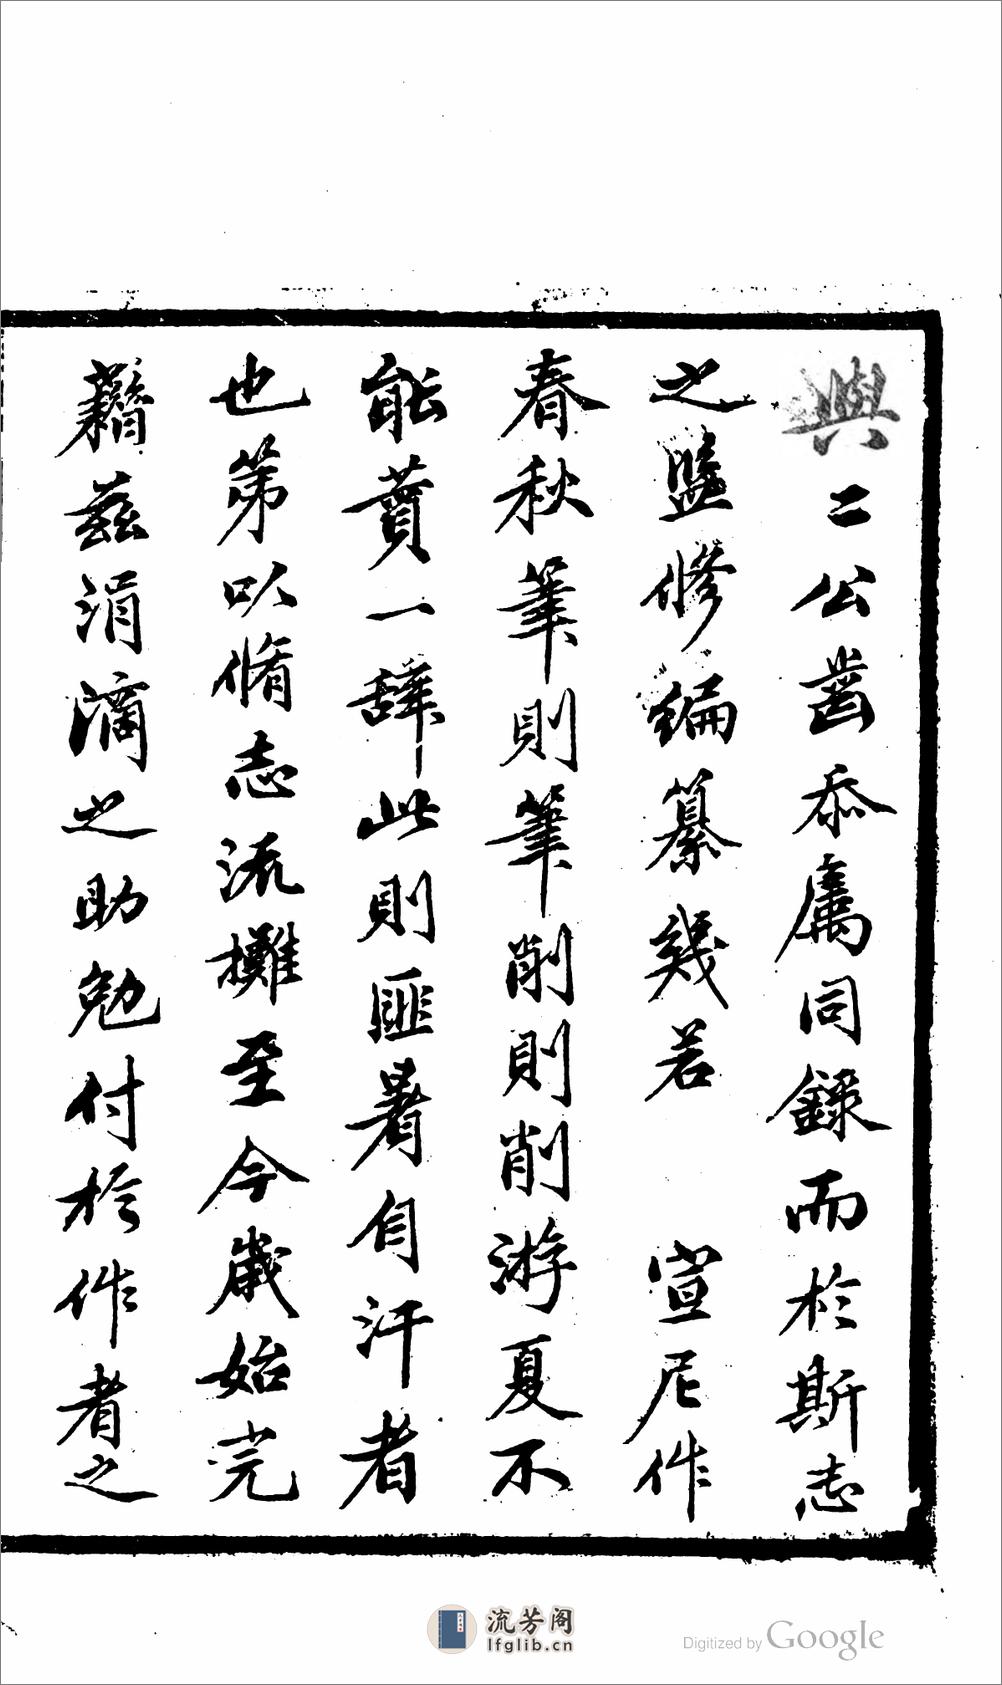 與二公齒忝屬同錄而於斯志
之監修編纂幾若宣尼作
春秋筆則筆削則削游夏不
能賛一辭此則匪暑自汗者
也第以脩志流攤至今歲始完
藉茲涓滴之助勉付於作者之
流芳阁
lfglib.cn
Digitized by Google